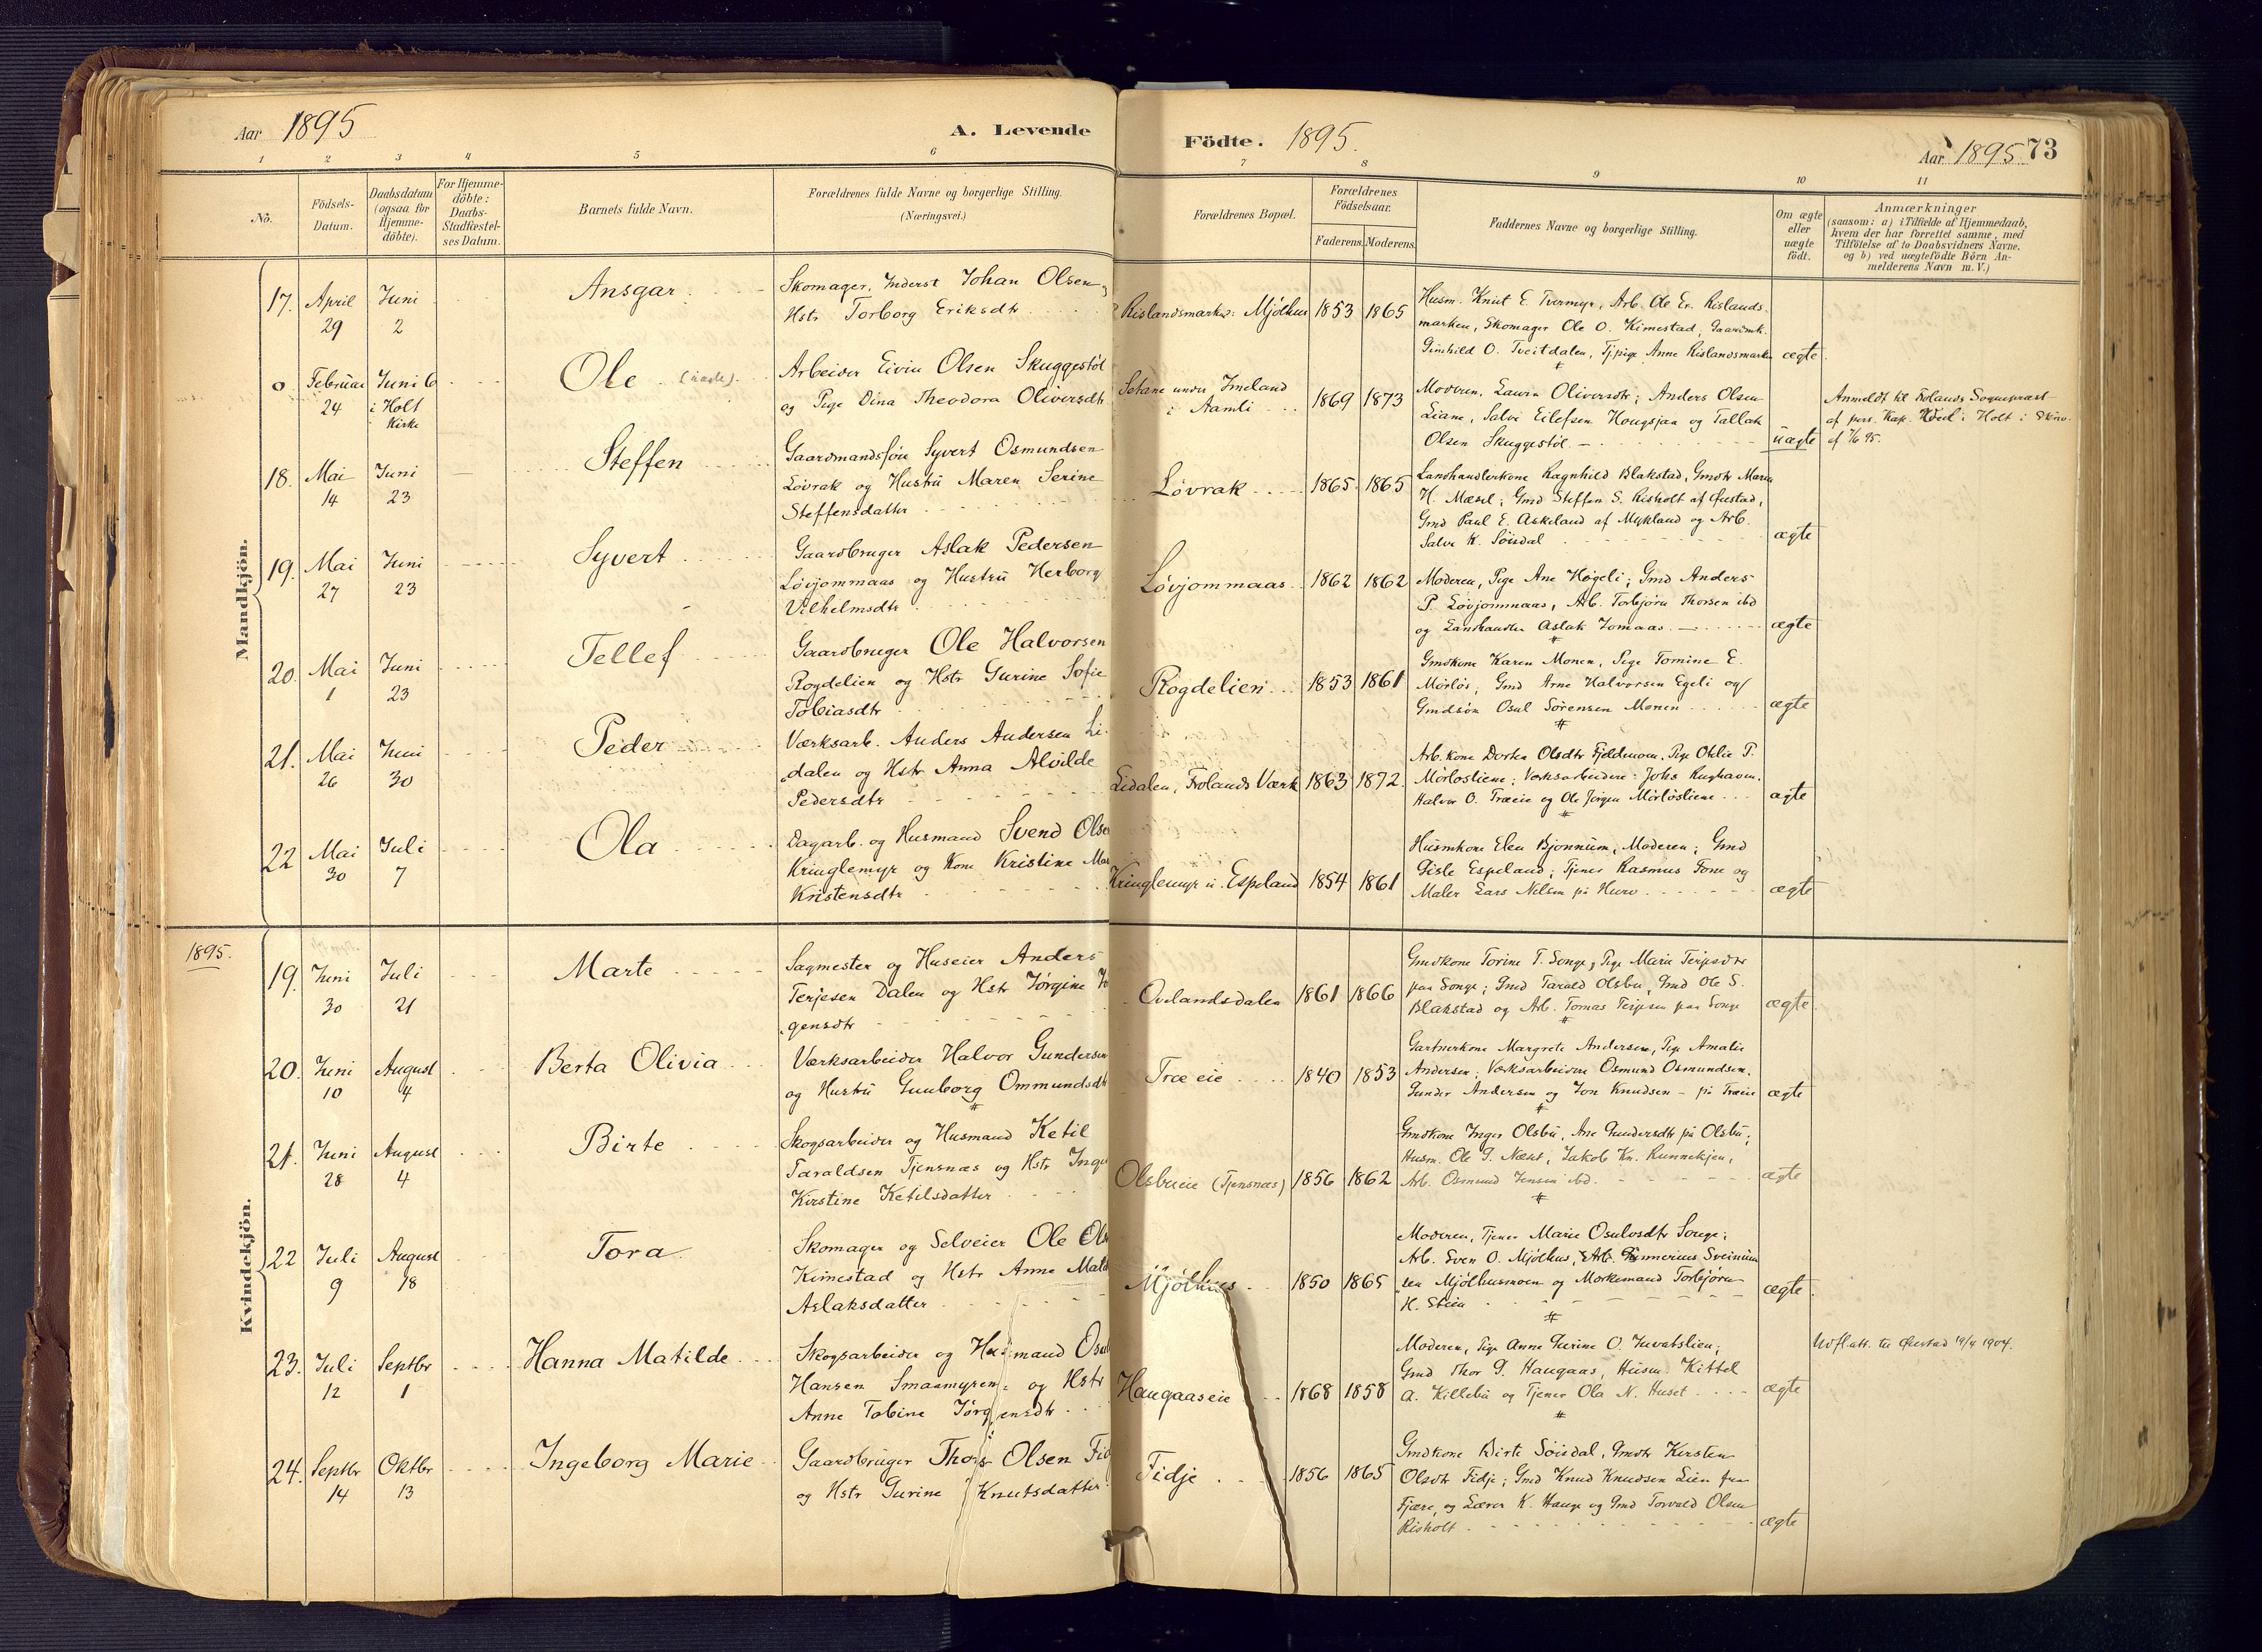 Aar 1895
A. Levende
Födte. 1895.
Aar 1895. 73
1 2 3 4 5 6 7 8 9 10 11
No.
Födsels-
Datum.
Daabsdatum
(ogsaa for
Hjemme-
döbte).
For Hjemme-
döbte:
Daabs-
Stadfæstel-
ses Datum.
Barnets fulde Navn.
Forældrenes fulde Navne og borgerlige Stilling.
(Næringsvei.)
Forældrenes Bopæl.
Forældrenes
Födselsaar.
Faderens. Moderens.
Faddernes Navne og borgerlige Stilling.
Om ægte
eller
uægte
födt.
Anmærkninger
(saasom: a) i Tilfælde af Hjemmedaab,
hvem der har forrettet samme, med
Tilföielse af to Daabsvidners Navne.
og b) ved uægtefödte Börn An-
melderens Navn m. V.)
Mandkjön.
17. April 29 Juni 2
Ansgar
Skomager, Inderst Johan Olsen
Hstr Torborg Eriksdtr
Rislandsmarken: Mjölhus 1853 1865
Husm. Knut E. Tvermyr, Arb. Ole Er. Rislands-
marken, Skomager Ole O. Kimestad, Gaardmk.
Gunhild O. Tveitdalen, Tjpige Anne Rislandsmarken
ægte
0 Februar 24 Juni 6 i Holt Kirke
Ole (uægte)
Arbeider Eivin Olsen Skuggestöl
og Pige Dina Theodora Oliversdtr
under Imeland
i Aamli 1869 1873
Moderen, Laura Oliversdtr; Anders Olsen
Liane, Salve Eilefsen Hougsjaa og Tallak
Olsen Skuggestöl
uægte
Anmeldt til Frolands Sogneprest
af pers. Kap. i Holt i Skriv.
af 7/6 95.
18. Mai 14 Juni 23
Steffen
Gaardmandsføn Syvert Osmundsen
Løvrak og Hustrü Maren Serine
Steffensdatter
Løvrak 1865 1865
Landhandlerkone Ragnhild Blakstad, Gmdtr Maria
H. Mæsel; Gmd Steffen S. Risholt af Øiestad,
Gmd Paul E. Askeland af Mykland og Arb.
Salve K. Søisdal
ægte
19. Mai 27 Juni 23
Syvert
Gaardbruger Aslak Pedersen
Løvjommaas og Hustrü Herborg
Vilhelmsdtr
Løvjommaas 1862 1862
Moderen, Pige Ane Høgeli; Gmd Anders
P. Løvjommaas, Arb. Torbjørn Thorsen ibd
og Landhandler Aslak Jomaas
ægte
20. Mai 1 Juni 23
Tellef
Gaardbruger Ole Halvorsen
Rogdelien og Hstr Gurine Sofie
Tobiasdtr
Rogdelien 1853 1861
Gmdkone Karen Monen, Pige Tomine E.
Mørløs; Gmd Arne Halvorsen Egeli og
Gmdsön Osul Sørensen Monen
ægte
21. Mai 26 Juni 30
Peder
Værksarb. Anders Andersen Li-
dalen og Hstr. Anna Alvilde
Pedersdtr
Lidalen, Frolands Værk 1863 1872
Arb. kone Dorthea Olsdtr Fjeldmoen, Pige Othlie T.
Mörlosliene; Værksarbeidere: Johs Rughaven,
Halvor O. Træeie og Ole Jörgen Mörlösliene
ægte
22 Mai 30 Juli 7
Ola
Dagarb. og Husmand Svend Olsen
Kringlemyr og Kone Kristine
Kristensdtr
Kringlemyr ü. Espeland 1854 1861
Husmkone Elen Bjonnüm, Moderen; Gmd
Gisle Espeland; Tjener Rasmus Tone og
Maler Lars Nilsen på Hurv
ægte
1895.
Kvindekjön.
19. Juni 30 Juli 21
Marte
Sagmester og Huseier Anders
Terjesen Dalen og Hstr Jörgine
gensdtr
Ovelandsdalen 1861 1866
Gmdkone Torine T. Songe, Pige Marie Terjesdtr
paa Songe; Gmd Tarald Olsbu, Gmd Ole S.
Blakstad og Arb. Tomas Terjesen paa Songe
ægte
20. Juni 10 August 4
Berta Olivia
Værksarbeider Halvor Gundersen
og Hustrü Gunborg Ommundsdtr
Træeie 1840 1853
Gartnerkone Margrete Andersen, Pige Amalie
Andersen; Værksarbeiderne Osmund Osmundsen,
Gunder Andersen og Jon Knudsen – på Træeie
ægte
21. Juni 28 August 4
Birte
Skogsarbeider og Husmand Ketil
Taraldsen Tjensnæs og Hstr
Kirstine Ketilsdatter
Olsbueie (Tjensnæs) 1856 1862
Gmdkone Inger Olsbü, Ane Gundersdtr på Olsbü;
Husm. Ole G. Næset, Jakob Kn. Runnekjen,
Arb. Osmund Jensen ibd.
ægte
22 Juli 9 August 18
Tora
Skomager og Selveier Ole
Kimestad og Hstr Anne
Aslaksdatter
Mjölhus 1850 1865
Moderen, Tjener Marie Osulvsdtr Songe;
Arb. Sven O. Mjölhus, Arb. Gunnerius Sveinün
sen Mjölhusmoen og Morkemand Torbjörn
H. Stien
ægte
23. Juli 12 Septbr 1
Hanna Matilde
Skogsarbeider og Husmand
Hansen Smaamyren og Hstr
Anne Tobine Jörgensdtr
Haugaaseie 1868 1858
Moderen, Pige Anne Gurine O. Juvatslien;
Gmd Thor G. Haugaas, Husm. Kittel
A. Killebu og Tjener Ola N. Huset
ægte
Udflatt. til Øiestad 19/4 1904.
24. Septbr 14 Oktbr 13
Ingeborg Marie
Gaardbrüger Thor Olsen
og Hstr Gurine Knutsdatter
Fidje 1856 1865
Gmdkone Birte Söisdal, Gmdtr Kirsten
Olsdtr Fidje; Gmd Knud Knudsen Lien fra
Fjære, og Lærer K. Hauge og Gmd Torvald Olsen
Risholt
ægte